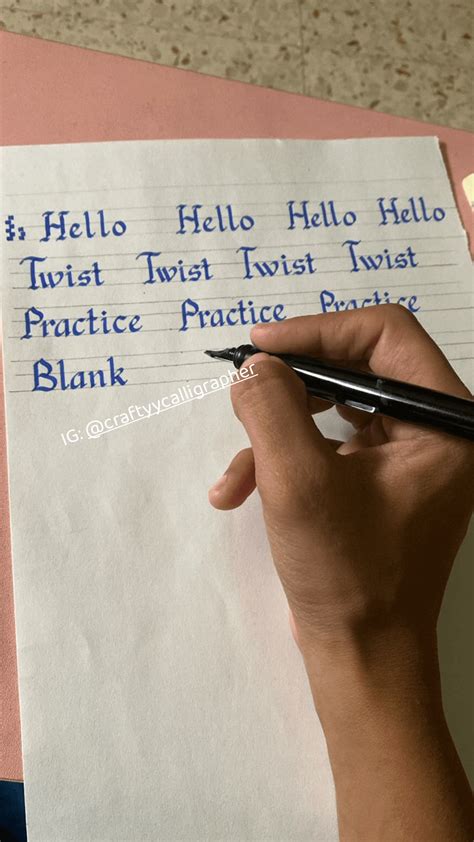 Hello Hello Hello Hello
Twist Twist Twist Twist
Practice Practice Practice
Blank
IG: @craftyycalligrapher